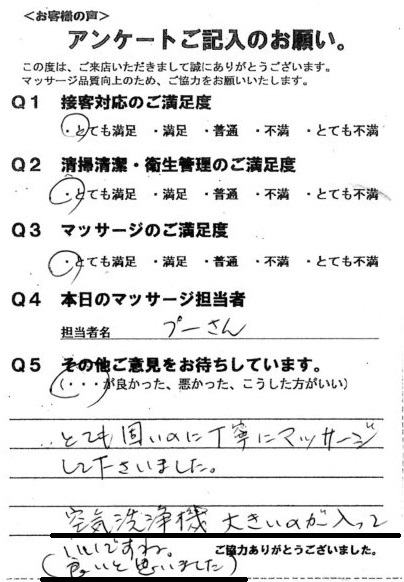 ＜お客様の声＞
アンケートご記入のお願い。
この度は、ご来店いただきまして誠にありがとうございます。
マッサージ品質向上のため、ご協力をお願いいたします。
Q1 接客対応のご満足度
・とても満足 ・満足 ・普通 ・不満 ・とても不満
Q2 清掃清潔・衛生管理のご満足度
・とても満足 ・満足 ・普通 ・不満 ・とても不満
Q3 マッサージのご満足度
・とても満足 ・満足 ・普通 ・不満 ・とても不満
Q4 本日のマッサージ担当者
担当者名 プーさん
Q5 その他ご意見をお待ちしています。
（・・・が良かった、悪かった、こうした方がいい）
‥とても固いのに丁寧にマッサージ
して下さいました。
空気洗浄機 大きいのが入って
いいですね。
ご協力ありがとうございました。
（良いと思いました）